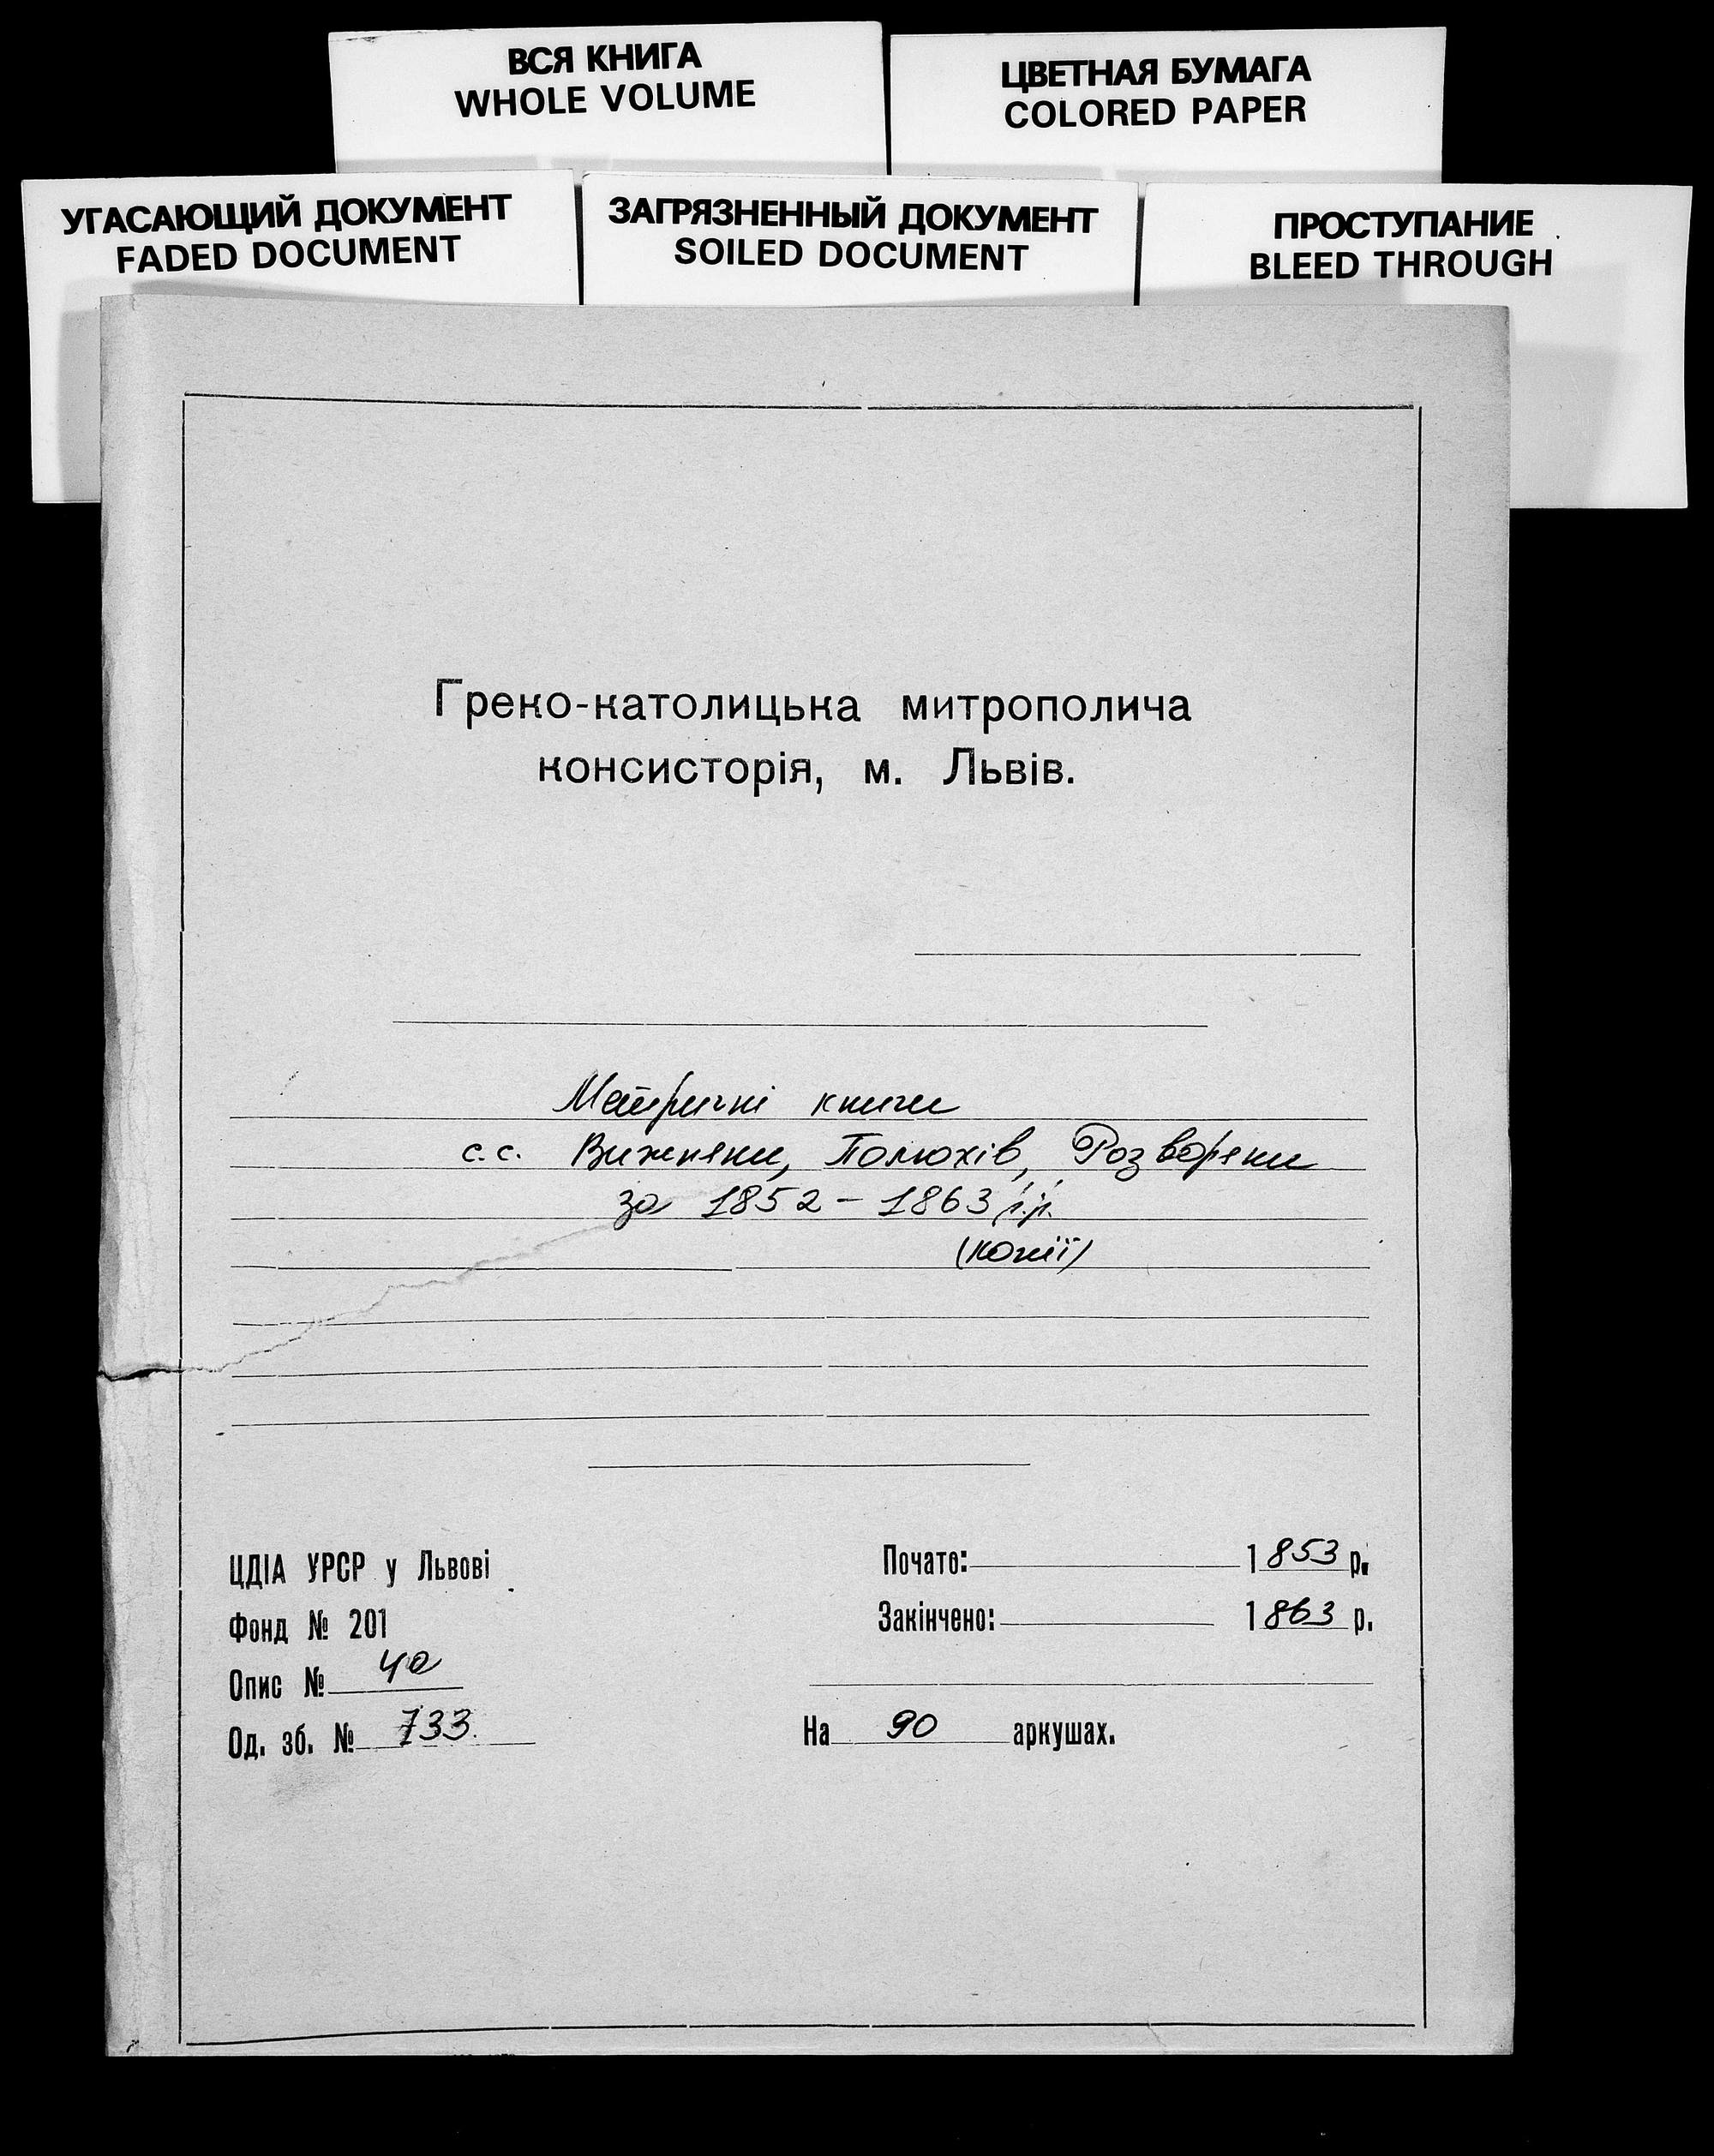 ВСЯ КНИГА
WHOLE VOLUME
ЦВЕТНАЯ БУМАГА
COLORED PAPER
УГАСАЮЩИЙ ДОКУМЕНТ
FADED DOCUMENT
ЗАГРЯЗНЕННЫЙ ДОКУМЕНТ
SOILED DOCUMENT
ПРОСТУПАНИЕ
BLEED THROUGH
Греко-католицька митрополича
консисторія, м. Львів.
Метричні книги
с.с. Вижняни, Полюхів, Розворяни
за 1852 - 1863 р.р.
(копії)
ЦДІА УРСР у Львові
Фонд № 201
Опис № 4а
Од. зб. № 733.
Почато: 1853 р.
Закінчено: 1863 р.
На 90 аркушах.